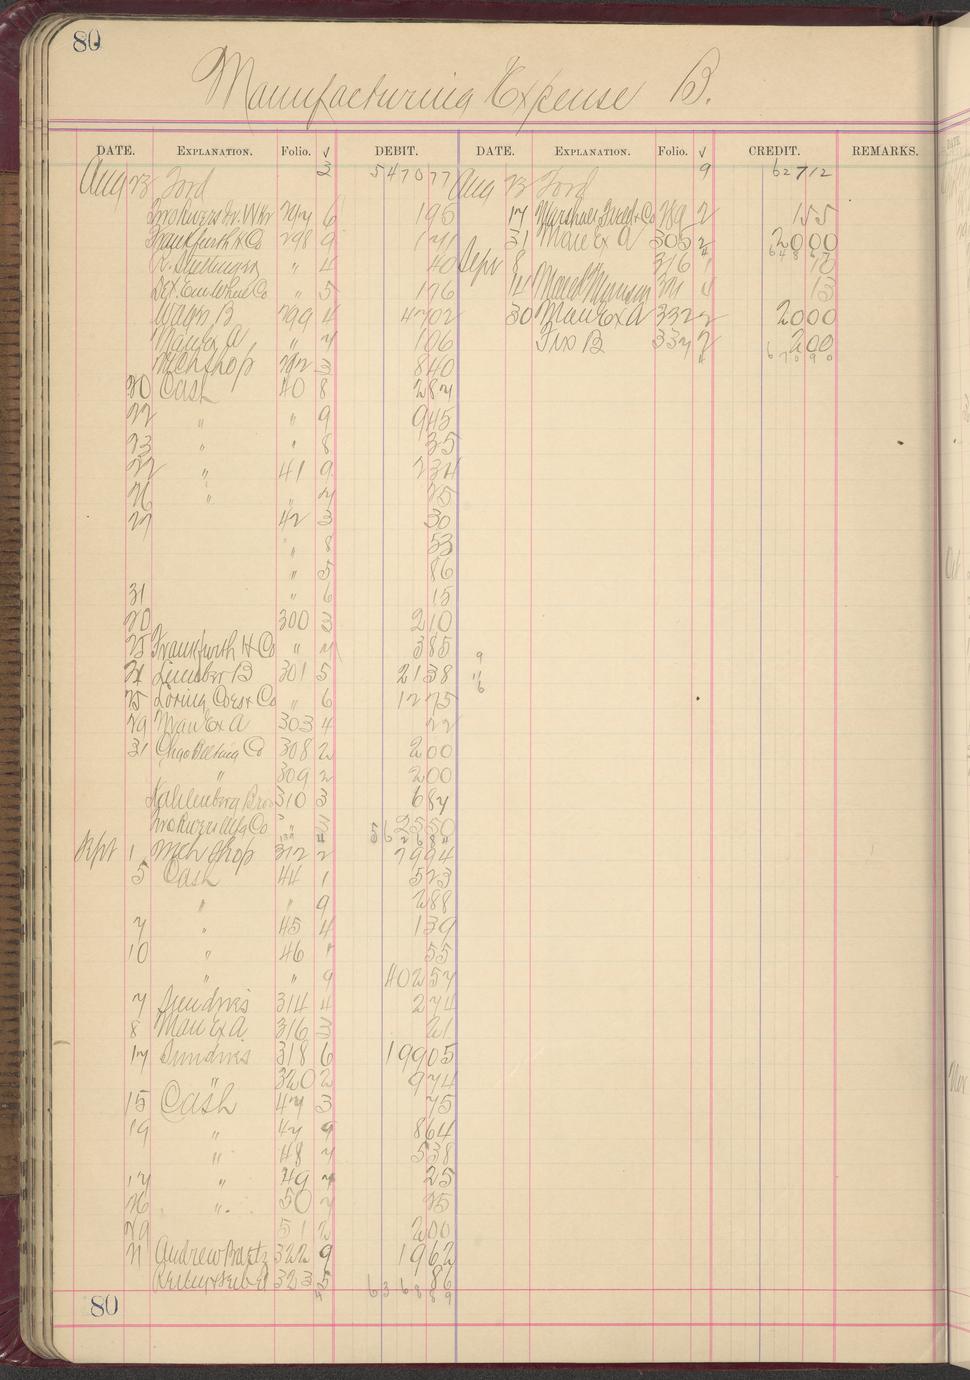 80
Manufacturing Expense B.
DATE. EXPLANATION. Folio. √ DEBIT. DATE. EXPLANATION. Folio. √ CREDIT. REMARKS.
Aug 23 Ford 3 547077 Aug 23 Ford 9 62712
6 195 17 Marshall Field & Co 289 2 155
Frankfurth & Co 298 9 171 31 Man Ex A 305 2 2000
" 4 40 Sept 8 316 1 12
" 5 176 14 4 13
Wages B 299 4 4702 30 Man Ex A 332 2 2000
Man Ex A " 7 106 Fix B 337 7 200
Mch Shop 292 3 840
20 Cash 40 8 287
22 " " 9 945
23 " " 8 35
22 " 41 9 234
26 " " 7 25
27 42 3 30
" 8 53
" 5 86
31 " 6 15
20 300 3 210
25 Frankfurth H Co " 385
21 Lumber B 301 5 2138
25 Loring Coes & Co " 6 1275
29 Man Ex A 303 4 22
31 Chgo Belting Co 308 2 200
" 309 2 200
Kahlenberg Bros 310 3 687
Mfg Co " 2550
Sept 1 Mch Shop 312 2 2994
5 Cash 44 1 523
" " 9 288
7 " 45 4 139
10 " 46 1 55
" " 9 40257
7 Sundries 314 4 274
8 Man Ex A 316 3 21
17 Sundries 318 6 19905
" 320 2 974
15 Cash 47 3 75
19 " 47 9 864
" 48 7 538
17 " 49 7 25
26 " 50 7 25
29 51 2 200
11 Andrew Bartz 322 9 1962
323 5 86
636889
80